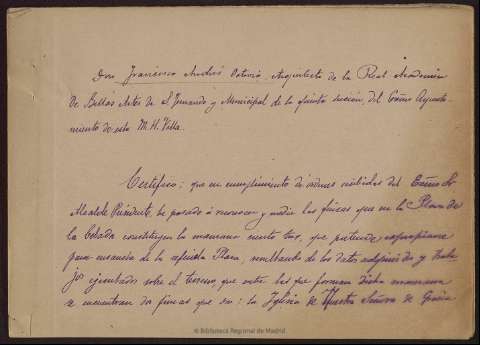 Don Francisco Andrés Octavio, Arquitecto de la Real Academia
de Bellas Artes de S. Fernando y Municipal de la quinta sección, del Exmo Ayunta-
miento de esta M. H. Villa.
Certifico: que en cumplimiento de órdenes recibidas del Exmo Sr
Alcalde Presidente, he pasado á reconocer y medir las fincas que en la Plaza de
la Cebada constituyen la manzana ciento tres, que pretende expropiarse
para ensanche de la referida Plaza, resultando de los datos adquiridos y traba-
jos ejecutados sobre el terreno que entre las que forman dicha manzana
se encuentran dos fincas que son: la Iglesia de Nuestra Señora de Gracia
© Biblioteca Regional de Madrid